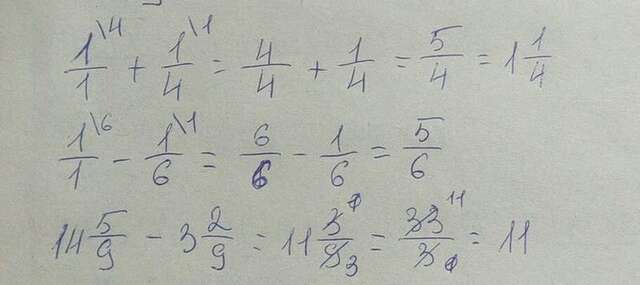 1\4/1 + 1\1/4 = 4/4 + 1/4 = 5/4 = 1 1/4
1\6/1 - 1\1/6 = 6/6 - 1/6 = 5/6
14 5/9 - 3 2/9 = 11 3/9 3 = 33 11/3 = 11